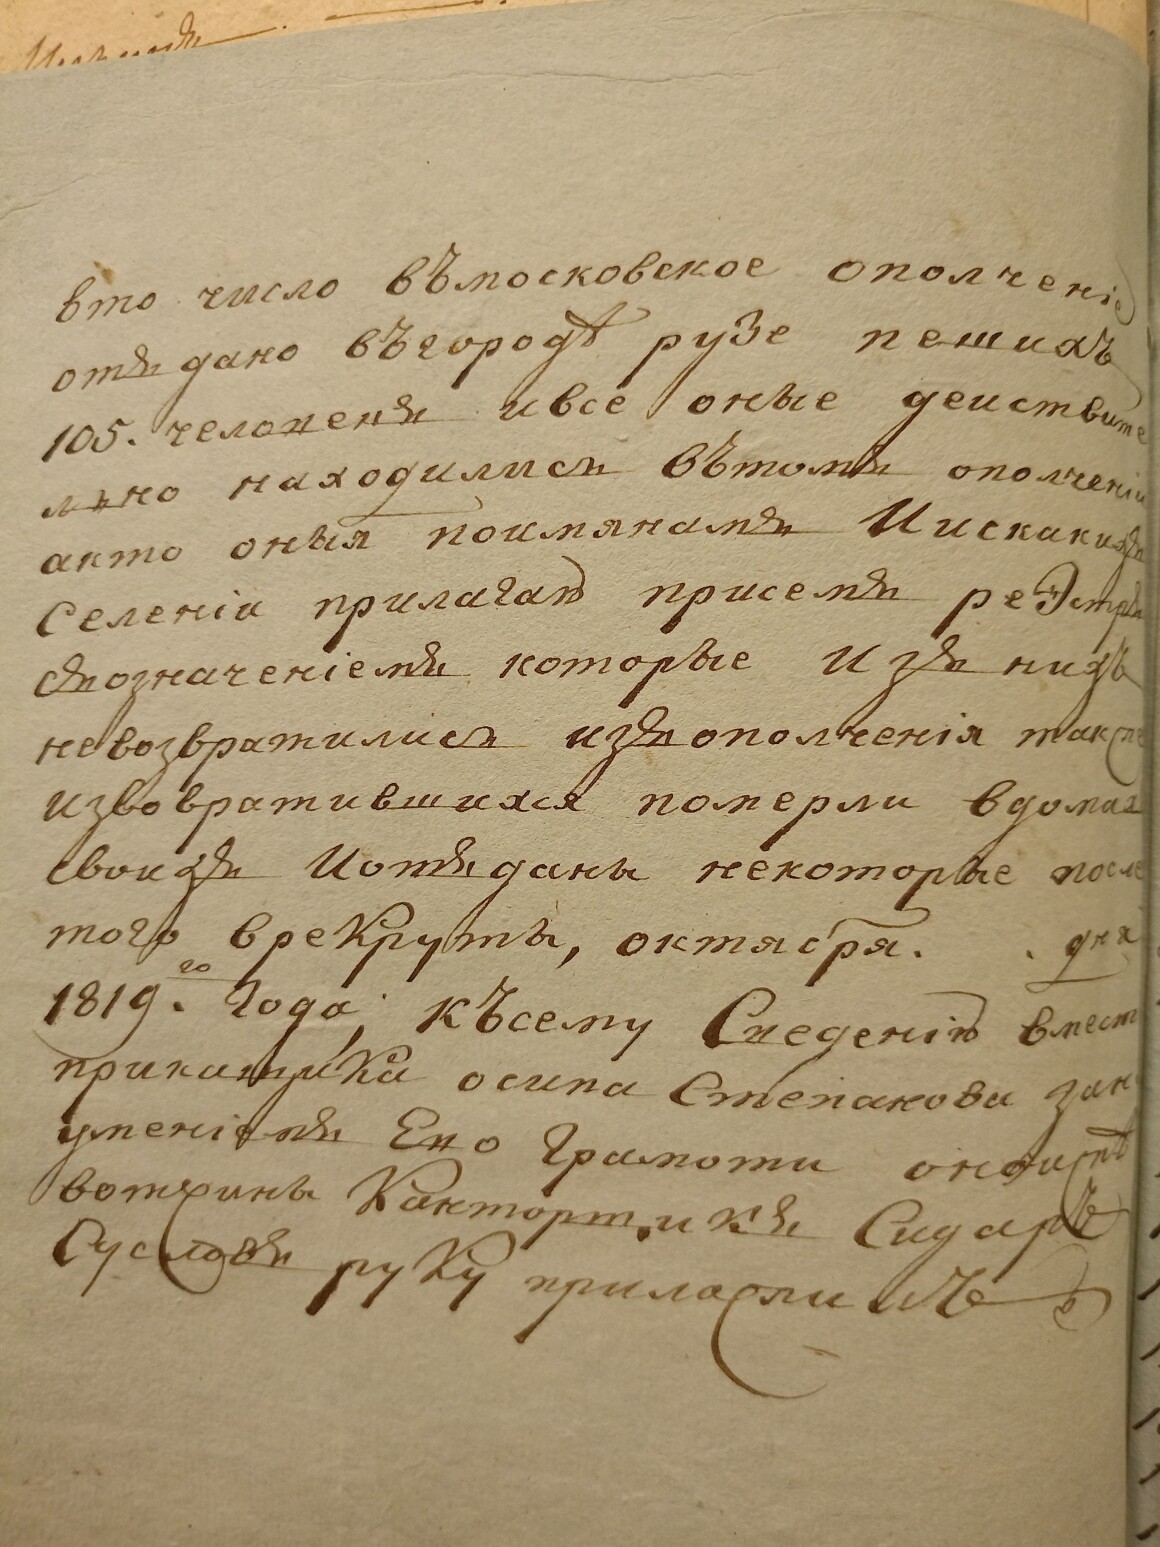 вто число въмосковское ополченіе
отъдано въгородѣ рузе пешихъ
105. человекъ ивсе оные деиствите
льно находились вътомъ ополченіи
акто оныя поимянамъ Иискакихъ
Селеніи прилагаю присемъ реЭстръ
съозначеніемъ которые Изъ нихъ
невозвратились изъополченія также
извовратившихся померли вдомах
своихъ Иотъданы некоторые после
того врекруты, октября. . дня
1819.го Года, късему Сведенію вмест
прикащика осипа Степанова зане
уменіемъ Ево Грамоти оной же
вотчины Канторщикъ Сидаръ
Сусловъ руку приложилъ